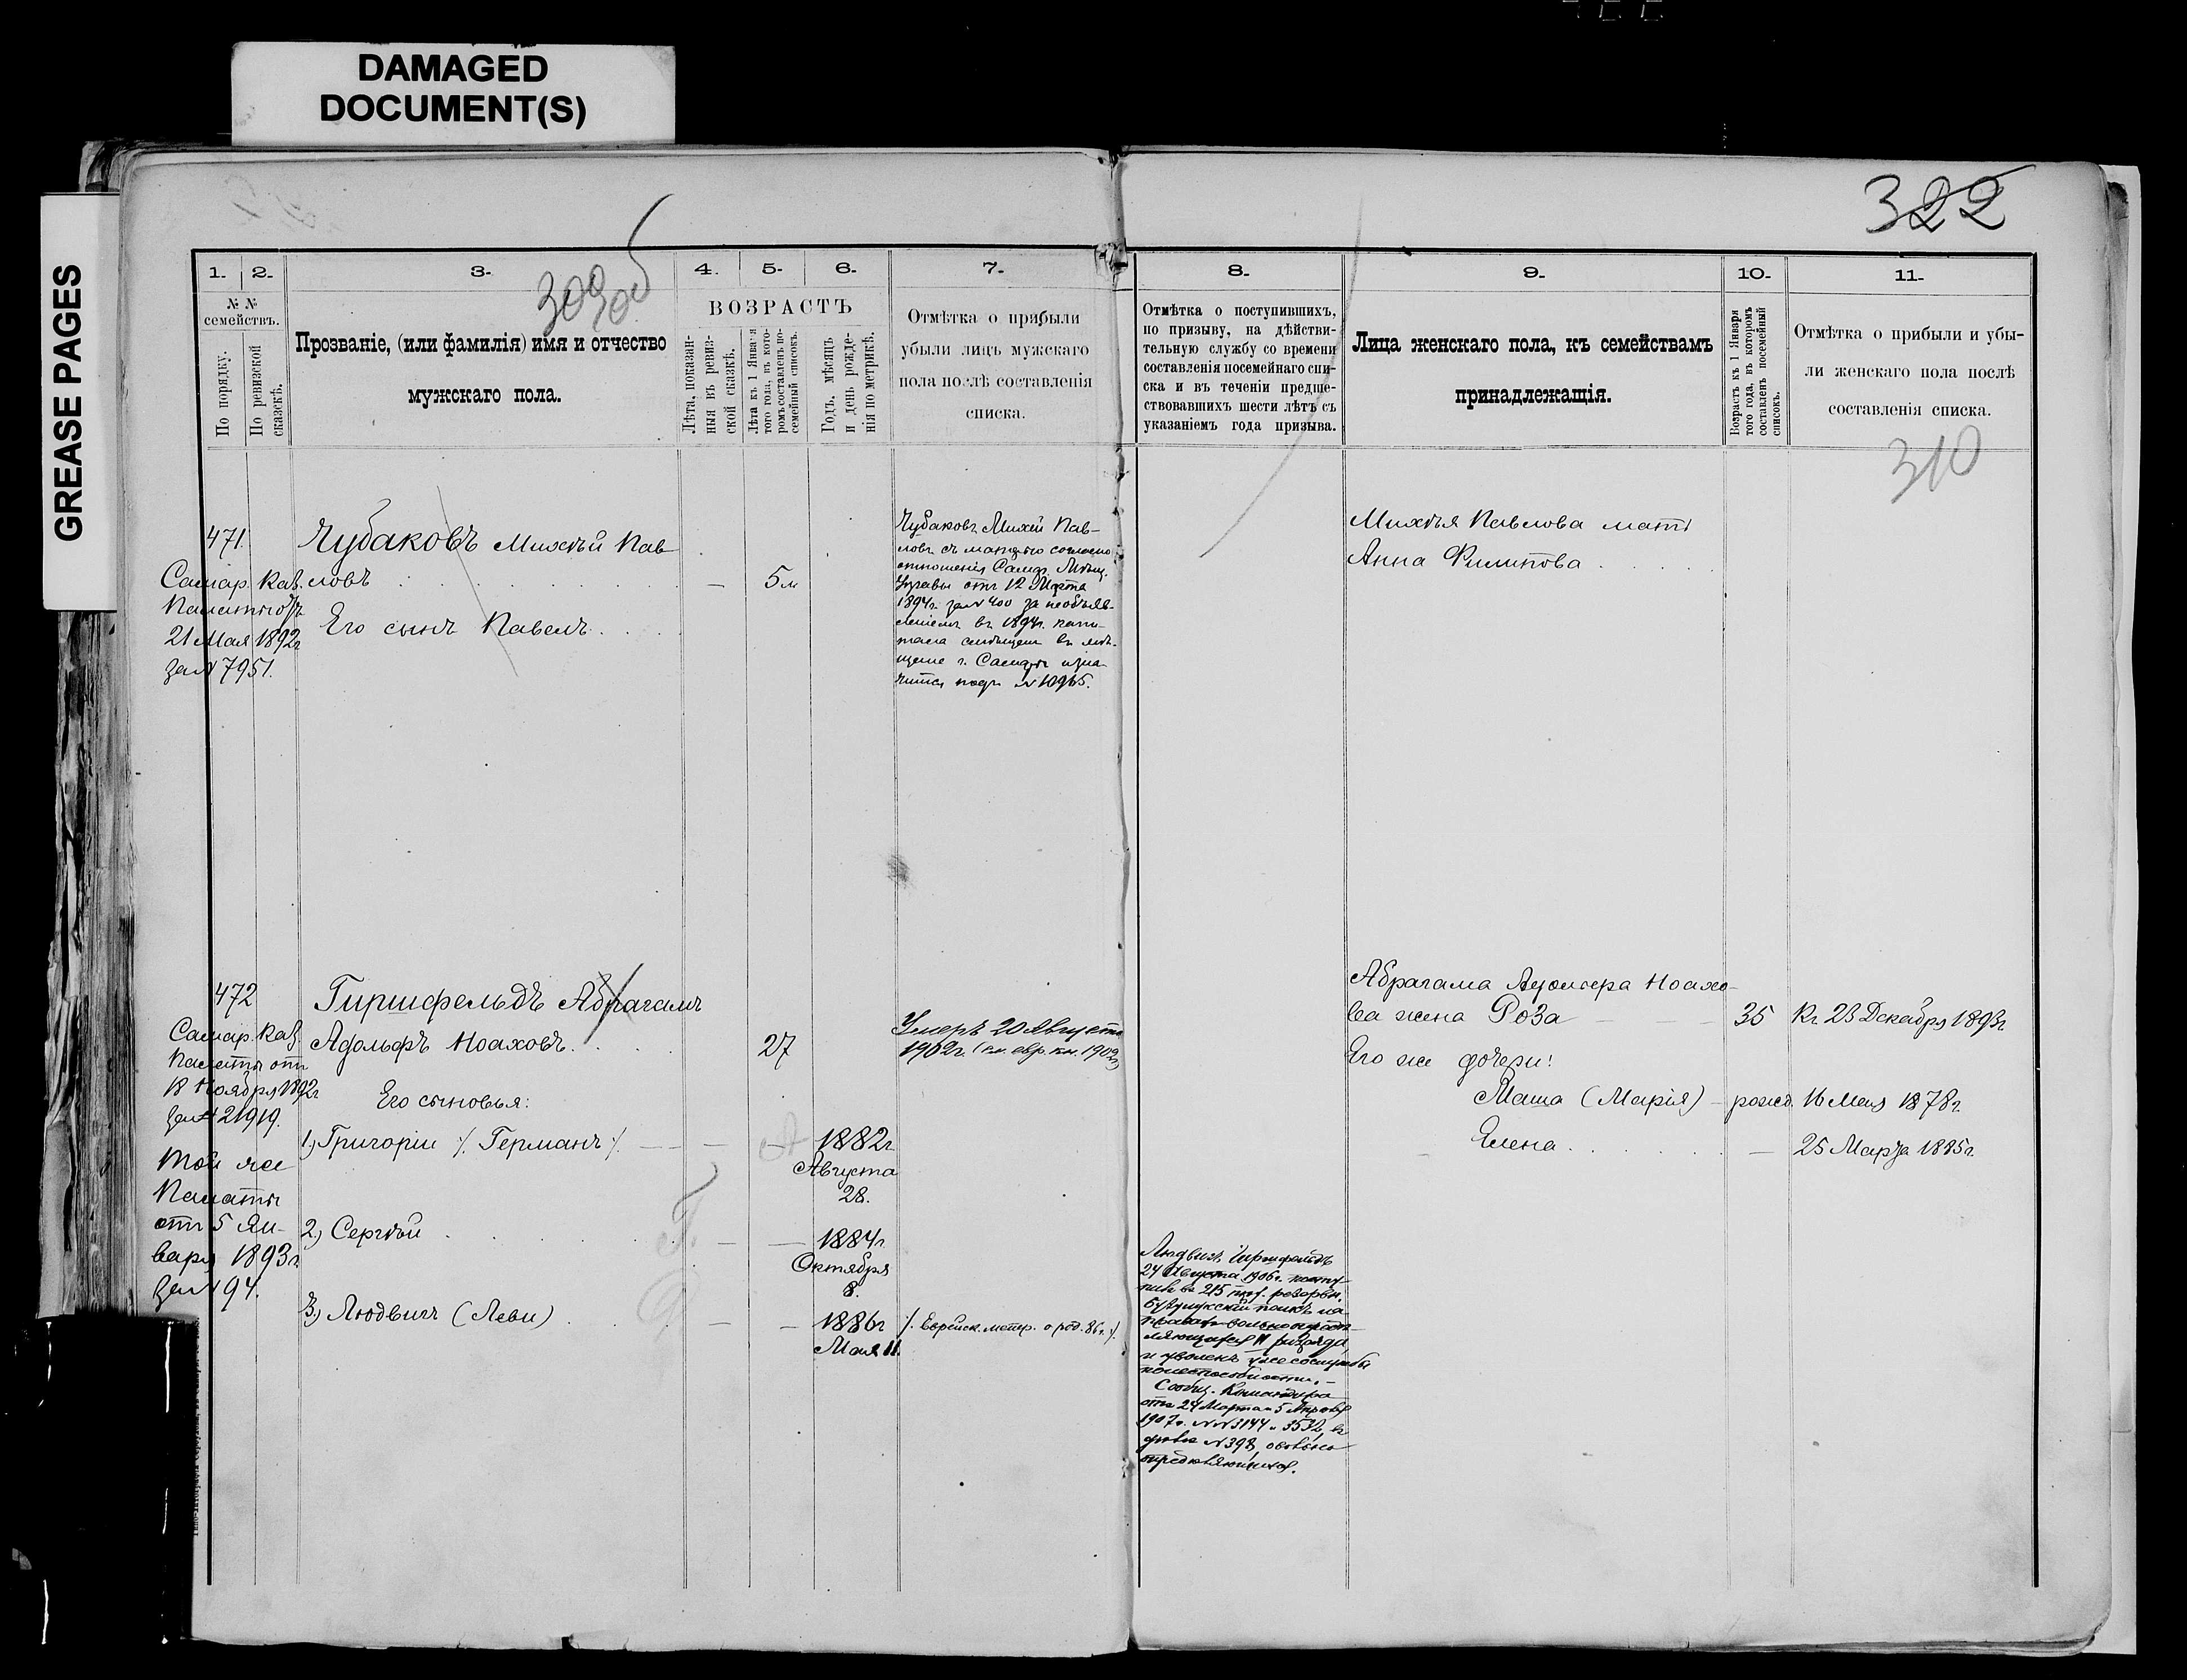 DAMAGED
DOCUMENT(S)
GREASE PAGES
322
309об
310
1.
2.
3.
4.
5.
6.
7.
8.
9.
10.
11.
№ №
семействъ.
По порядку.
По ревизской
сказкѣ.
Прозваніе, (или фамилія) имя и отчество
мужскаго пола.
ВОЗРАСТЪ
Лѣта, показан-
ныя въ ревиз-
ской сказкѣ.
Лѣта къ 1 Января
того года, въ кото-
ромъ составленъ по-
семейный списокъ.
Годъ, мѣсяцъ
и день рожде-
нія по метрикѣ.
Отмѣтка о прибыли
убыли лицъ мужскаго
пола послѣ составленія
списка.
Отмѣтка о поступившихъ,
по призыву, на дѣйстви-
тельную службу со времени
составленія посемейнаго спи-
ска и въ теченіи предше-
ствовавшихъ шести лѣтъ съ
указаніемъ года призыва.
Лица женскаго пола, къ семействамъ
принадлежащія.
Возрастъ къ 1 Января
того года, въ которомъ
составленъ посемейный
списокъ.
Отмѣтка о прибыли и убы-
ли женскаго пола послѣ
составленія списка.
471.
Самар. Каз.
Палаты отъ
21 Мая 1892г
за № 7951.
Чубаковъ Михѣй Пав
ловъ
Его сынъ Павелъ
5м
Чубаковъ Михей Пав-
ловъ съ матерью согласно
отношенія Самар. Мѣщ.
Управы отъ 12 Марта
1894г. за № 400 за необъяв-
леніемъ въ 1894г. капи-
тала въ мѣ-
щане г. Самары
подъ №
Михѣя Павлова мать
Анна Филипова
472
Самар. Каз.
Палаты отъ
18 Ноября 1892г
за № 21919.
Той же
Палаты
отъ 5 Ян-
варя 1893г.
за № 94.
Гиршфельдъ Абрагамъ
Адольфъ Ноаховъ.
27
Умеръ 20 Августа
1902г.
Его сыновья:
1) Григорій ·/. Германъ ·/.
1882г
Августа
28.
2) Сергѣй
1884г.
Октября
8.
3) Людвигъ (Леви)
1886г
Мая 11.
·/. Еврейск. метр. о род. 86г. ·/.
Людвигъ Гиршфельдъ
24 Августа 1906г. посту-
пилъ въ 215 пѣх. резервн.
Бузулукскій полкъ на
правахъ вольноопредѣ-
ляющагося II разряда
и уволенъ
Сообщ. Командира
отъ 24 Марта и 5 Апрѣля
1907г. №№ 3144 и 3532, въ
дѣлѣ № 398, о вольно
опредѣляющихся.
Абрагама Адольфа Ноахо-
ва жена Роза
35
Къ 23 Декабря 1893г
Его же дочери:
Маша (Марія)
рожд. 16 Мая 1878г.
Елена
25 Марта 1885г.